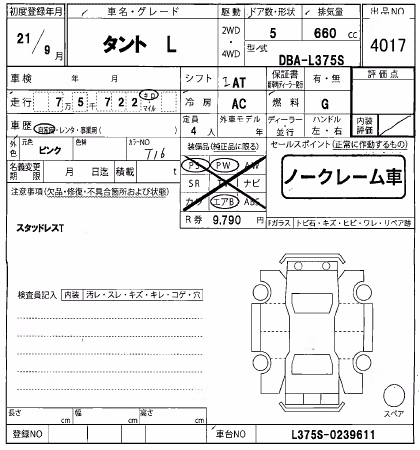 初度登録年月 車名・グレード 駆動 ドア数・形状 排気量 出品NO
21/9月 タント L 2WD・4WD 5 660 cc 4017
型式 DBA-L375S
車検 年 月 シフト IAT 保証書 有・無 評価点
走行 7万5千722 km マイル 冷房 AC 燃料 G
車歴 自家用・レンタ・事業用( ) 定員 4人 外車モデル 年 ディーラー 並行 ハンドル 左・右 内装評価
外色 元色 ピンク 色替 カラーNO 716 装備品(純正品に限る) セールスポイント(正常に作動するもの)
名義変更期限 月 日迄 積載 t PS PW AW
ノークレーム車
注意事項(欠品・修復・不具合箇所および状態) SR TV ナビ
カワ エアB ABS
スタッドレスT R券 9,790 円 Fガラス トビ石・キズ・ヒビ・ワレ・リペア跡
検査員記入 内装 汚レ・スレ・キズ・キレ・コゲ・穴
スペア
長さ cm 幅 cm 高さ cm
登録NO 車台NO L375S-0239611